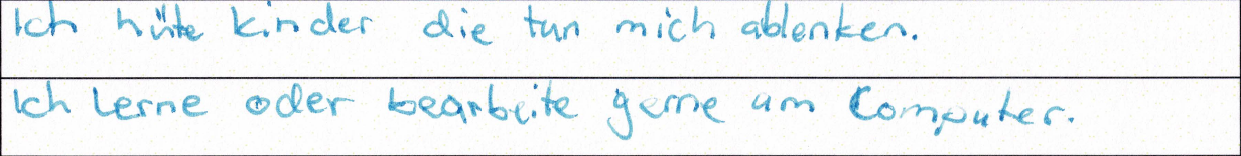 Ich hüte Kinder die tun mich ablenken.
Ich Lerne oder bearbeite gerne am Computer.